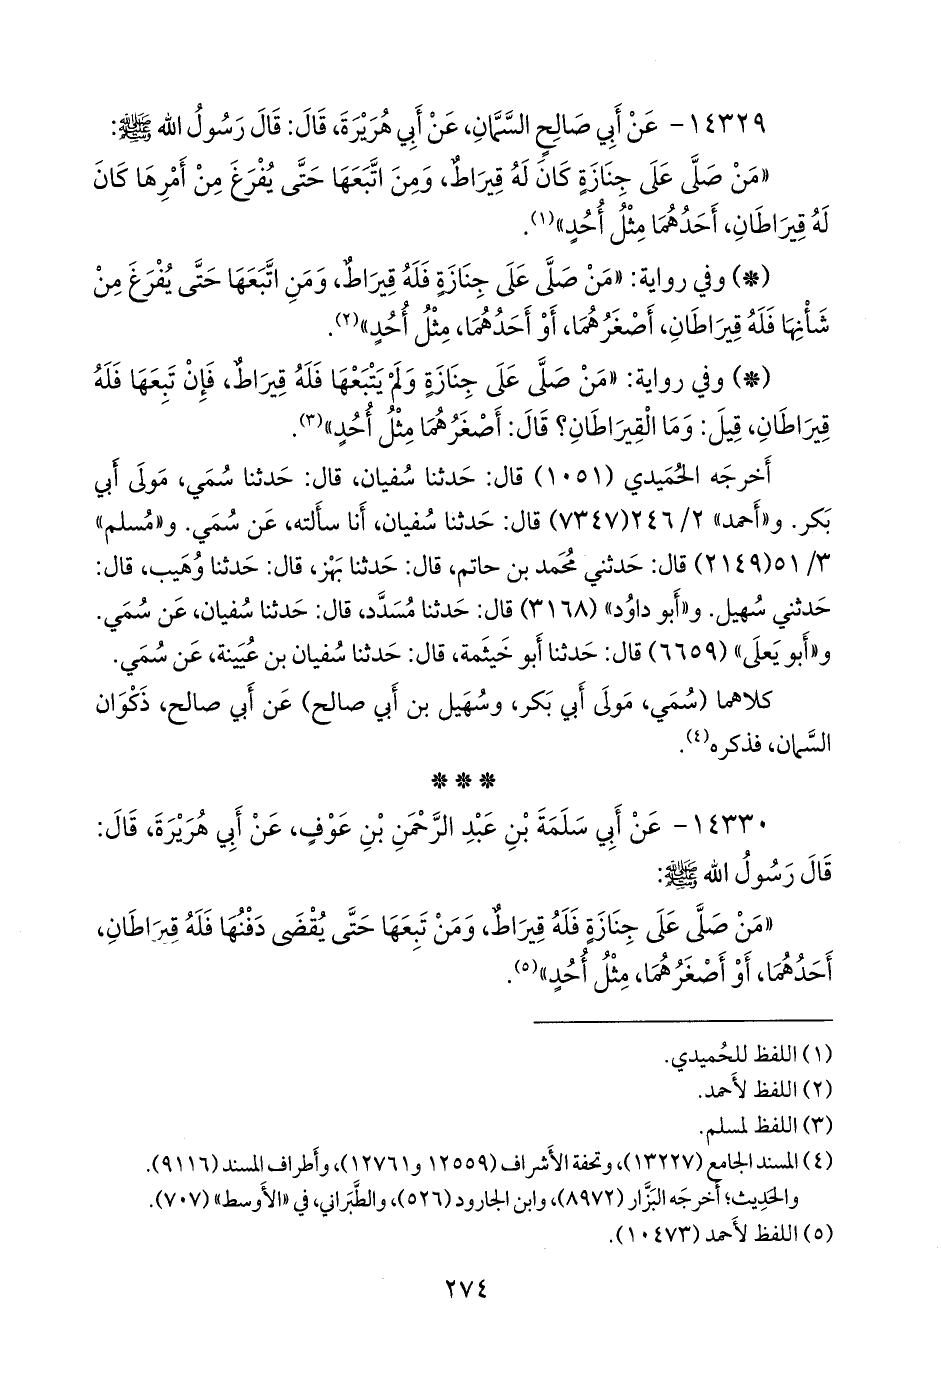 ١٤٣٢٩- عَنْ أَبِي صَالِحٍ السَّمَّانِ، عَنْ أَبِي هُرَيْرَةَ، قَالَ: قَالَ رَسُولُ الله ﷺ:
«مَنْ صَلَّى عَلَى جِنَازَةٍ كَانَ لَهُ قِيرَاطٌ، وَمِنَ اتَّبَعَهَا حَتَّى يُفْرَغَ مِنْ أَمْرِهَا كَانَ
لَهُ قِيرَاطَانِ، أَحَدُهُمَا مِثْلُ أُحُدٍ»(١).
(*) وفي رواية: «مَنْ صَلَّى عَلَى جِنَازَةٍ فَلَهُ قِيرَاطٌ، وَمَنِ اتَّبَعَهَا حَتَّى يُفْرَغَ مِنْ
شَأْنِهَا فَلَهُ قِيرَاطَانِ، أَصْغَرُهُمَا، أَوْ أَحَدُهُمَا، مِثْلُ أُحُدٍ»(٢).
(*) وفي رواية: «مَنْ صَلَّى عَلَى جِنَازَةٍ وَلَمْ يَتْبَعْهَا فَلَهُ قِيرَاطٌ، فَإِنْ تَبِعَهَا فَلَهُ
قِيرَاطَانِ، قِيلَ: وَمَا الْقِيرَاطَانِ؟ قَالَ: أَصْغَرُهُمَا مِثْلُ أُحُدٍ»(٣).
أَخرجَه الحُمَيدي (١٠٥١) قال: حَدثنا سُفيان، قال: حَدثنا سُمَي، مَولَى أَبي
بَكر. و«أَحمد» ٢/ ٢٤٦(٧٣٤٧) قال: حَدثنا سُفيان، أَنا سأَلته، عَن سُمَي. و«مُسلم»
٣/ ٥١(٢١٤٩) قال: حَدثني مُحَمد بن حاتم، قال: حَدثنا بَهْز، قال: حَدثنا وُهَيب، قال:
حَدثني سُهيل. و«أَبو داوُد» (٣١٦٨) قال: حَدثنا مُسَدَّد، قال: حَدثنا سُفيان، عَن سُمَي.
و«أَبو يَعلَى» (٦٦٥٩) قال: حَدثنا أَبو خَيثَمة، قال: حَدثنا سُفيان بن عُيَينة، عَن سُمَي.
كلاهما (سُمَي، مَولَى أَبي بَكر، وسُهَيل بن أَبي صالح) عَن أَبي صالح، ذَكْوَان
السَّمان، فذكره(٤).
* * *
١٤٣٣٠- عَنْ أَبِي سَلَمَةَ بْنِ عَبْدِ الرَّحْمَنِ بْنِ عَوْفٍ، عَنْ أَبِي هُرَيْرَةَ، قَالَ:
قَالَ رَسُولُ الله ﷺ:
«مَنْ صَلَّى عَلَى جِنَازَةٍ فَلَهُ قِيرَاطٌ، وَمَنْ تَبِعَهَا حَتَّى يُقْضَى دَفْنُهَا فَلَهُ قِيرَاطَانِ،
أَحَدُهُمَا، أَوْ أَصْغَرُهُمَا، مِثْلُ أُحُدٍ»(٥).
(١) اللفظ للحُميدي.
(٢) اللفظ لأَحمد.
(٣) اللفظ لمسلم.
(٤) المسند الجامع (١٣٢٢٧)، وتحفة الأَشراف (١٢٥٥٩ و١٢٧٦١)، وأَطراف المسند (٩١١٦).
والحَدِيث؛ أَخرجَه البَزَّار (٨٩٧٢)، وابن الجارود (٥٢٦)، والطَّبَراني، في «الأَوسط» (٧٠٧).
(٥) اللفظ لأَحمد (١٠٤٧٣).
٢٧٤